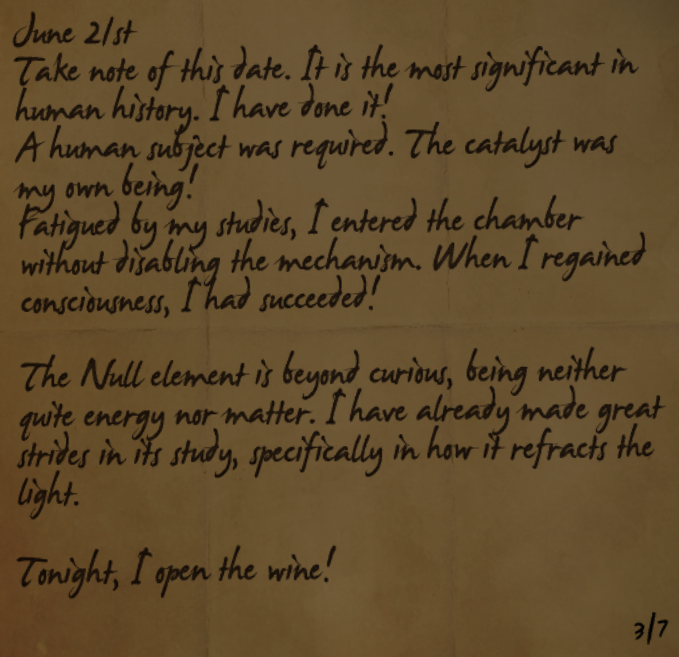 June 21st
Take note of this date. It is the most significant in
human history. I have done it!
A human subject was required. The catalyst was
my own being!
Fatigued by my studies, I entered the chamber
without disabling the mechanism. When I regained
consciousness, I had succeeded!
The Null element is beyond curious, being neither
quite energy nor matter. I have already made great
strides in its study, specifically in how it refracts the
light.
Tonight, I open the wine!
3/7